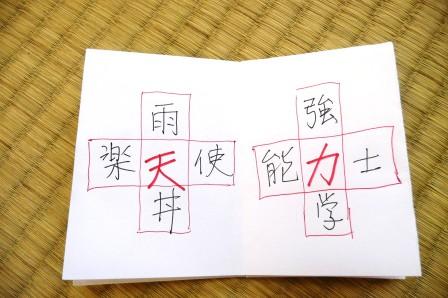 雨
楽天使
丼
強
能力士
学